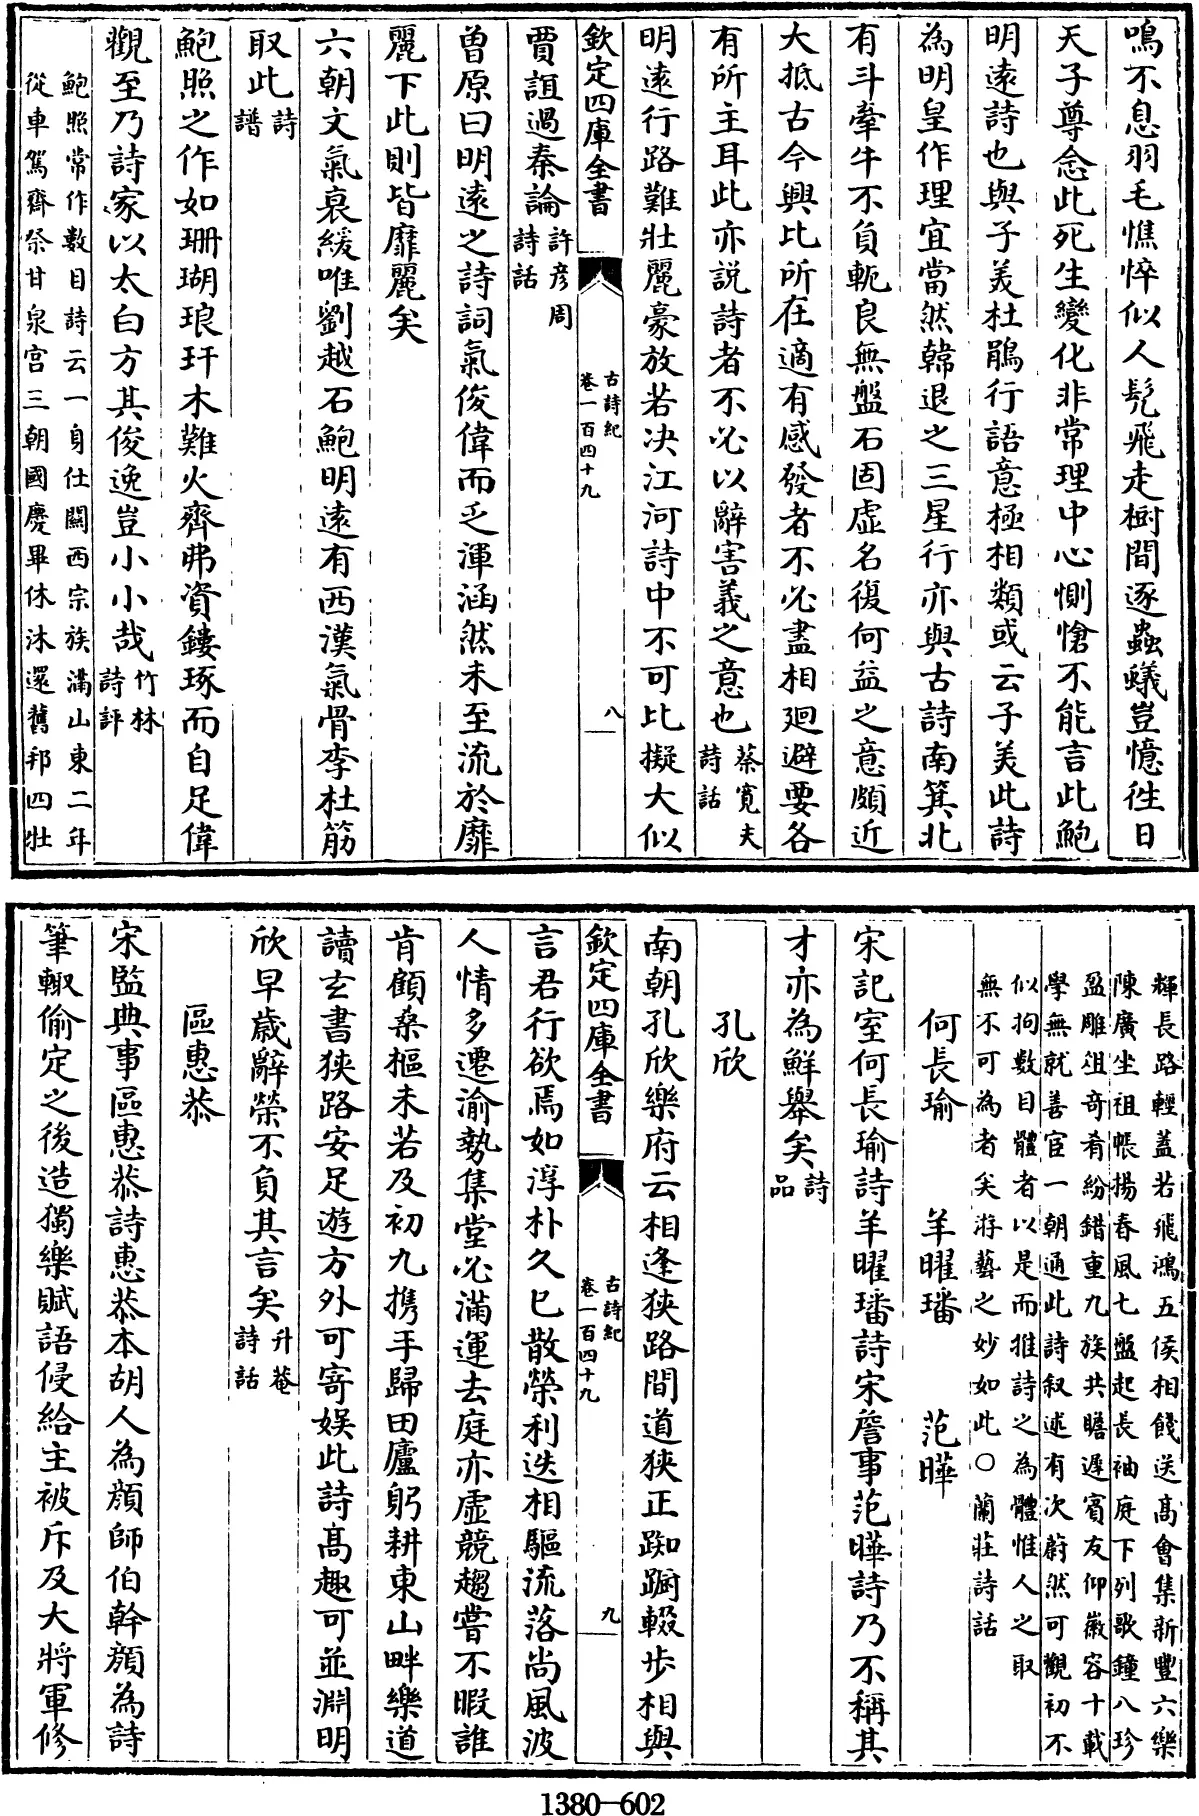 鳴不息羽毛憔悴似人髠飛走樹間逐蟲蟻豈憶徃日
天子尊念此死生變化非常理中心惻愴不能言此鮑
明逺詩也與子羙杜鵑行語意極相類或云子羙此詩
為明皇作理宜當然韓退之三星行亦與古詩南箕北
有斗牽牛不負軛良無盤石固虚名復何益之意頗近
大抵古今興比所在適有感發者不必盡相廻避要各
有所主耳此亦説詩者不必以辭害義之意也蔡寛夫
詩話
明逺行路難壯麗豪放若决江河詩中不可比擬大似
欽定四庫全書
古詩紀
卷一百四十九
八
賈誼過秦論許彦周
詩話
曽原曰明逺之詩詞氣俊偉而乏渾涵然未至流於靡
麗下此則皆靡麗矣
六朝文氣衰緩唯劉越石鮑明逺有西漢氣骨李杜筋
取此詩
譜
鮑照之作如珊瑚琅玕木難火齊弗資鏤琢而自足偉
觀至乃詩家以太白方其俊逸豈小小哉竹林
詩評
鮑照常作數目詩云一身仕關西宗族滿山東二年
從車駕齊祭甘泉宫三朝國慶畢休沐還舊邦四牡
輝長路輕蓋若飛鴻五侯相餞送髙會集新豐六樂
陳廣坐祖帳揚春風七盤起長袖庭下列歌鐘八珍
盈雕俎竒肴紛錯重九族共瞻遲賓友仰徽容十載
學無就善宦一朝通此詩叙述有次蔚然可觀初不
似拘數目體者以是而推詩之為體惟人之取
無不可為者矣游藝之妙如此○蘭莊詩話
何長瑜 羊曜璠 范曄
宋記室何長瑜詩羊曜璠詩宋詹事范曄詩乃不稱其
才亦為鮮舉矣詩
品
孔欣
南朝孔欣樂府云相逢狹路間道狹正踟蹰輟歩相與
欽定四庫全書
古詩紀
卷一百四十九
九
言君行欲焉如淳朴久已散榮利迭相驅流落尚風波
人情多遷渝勢集堂必滿運去庭亦虚競趨嘗不暇誰
肯顧桑樞未若及初九擕手歸田廬躬耕東山畔樂道
讀玄書狹路安足遊方外可寄娯此詩髙趣可並淵明
欣早歳辭榮不負其言矣升菴
詩話
區惠恭
宋監典事區惠恭詩惠恭本胡人為顔師伯幹顔為詩
筆輙偷定之後造獨樂賦語侵給主被斥及大將軍修
1380—602